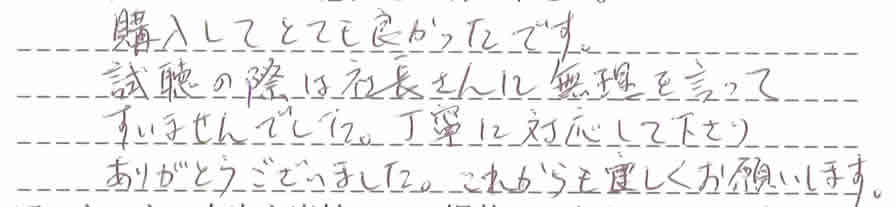 購入してとても良かったです。
試聴の際は社長さんに無理を言って
すいませんでした。丁寧に対応して下さり
ありがとうございました。これからも宜しくお願いします。